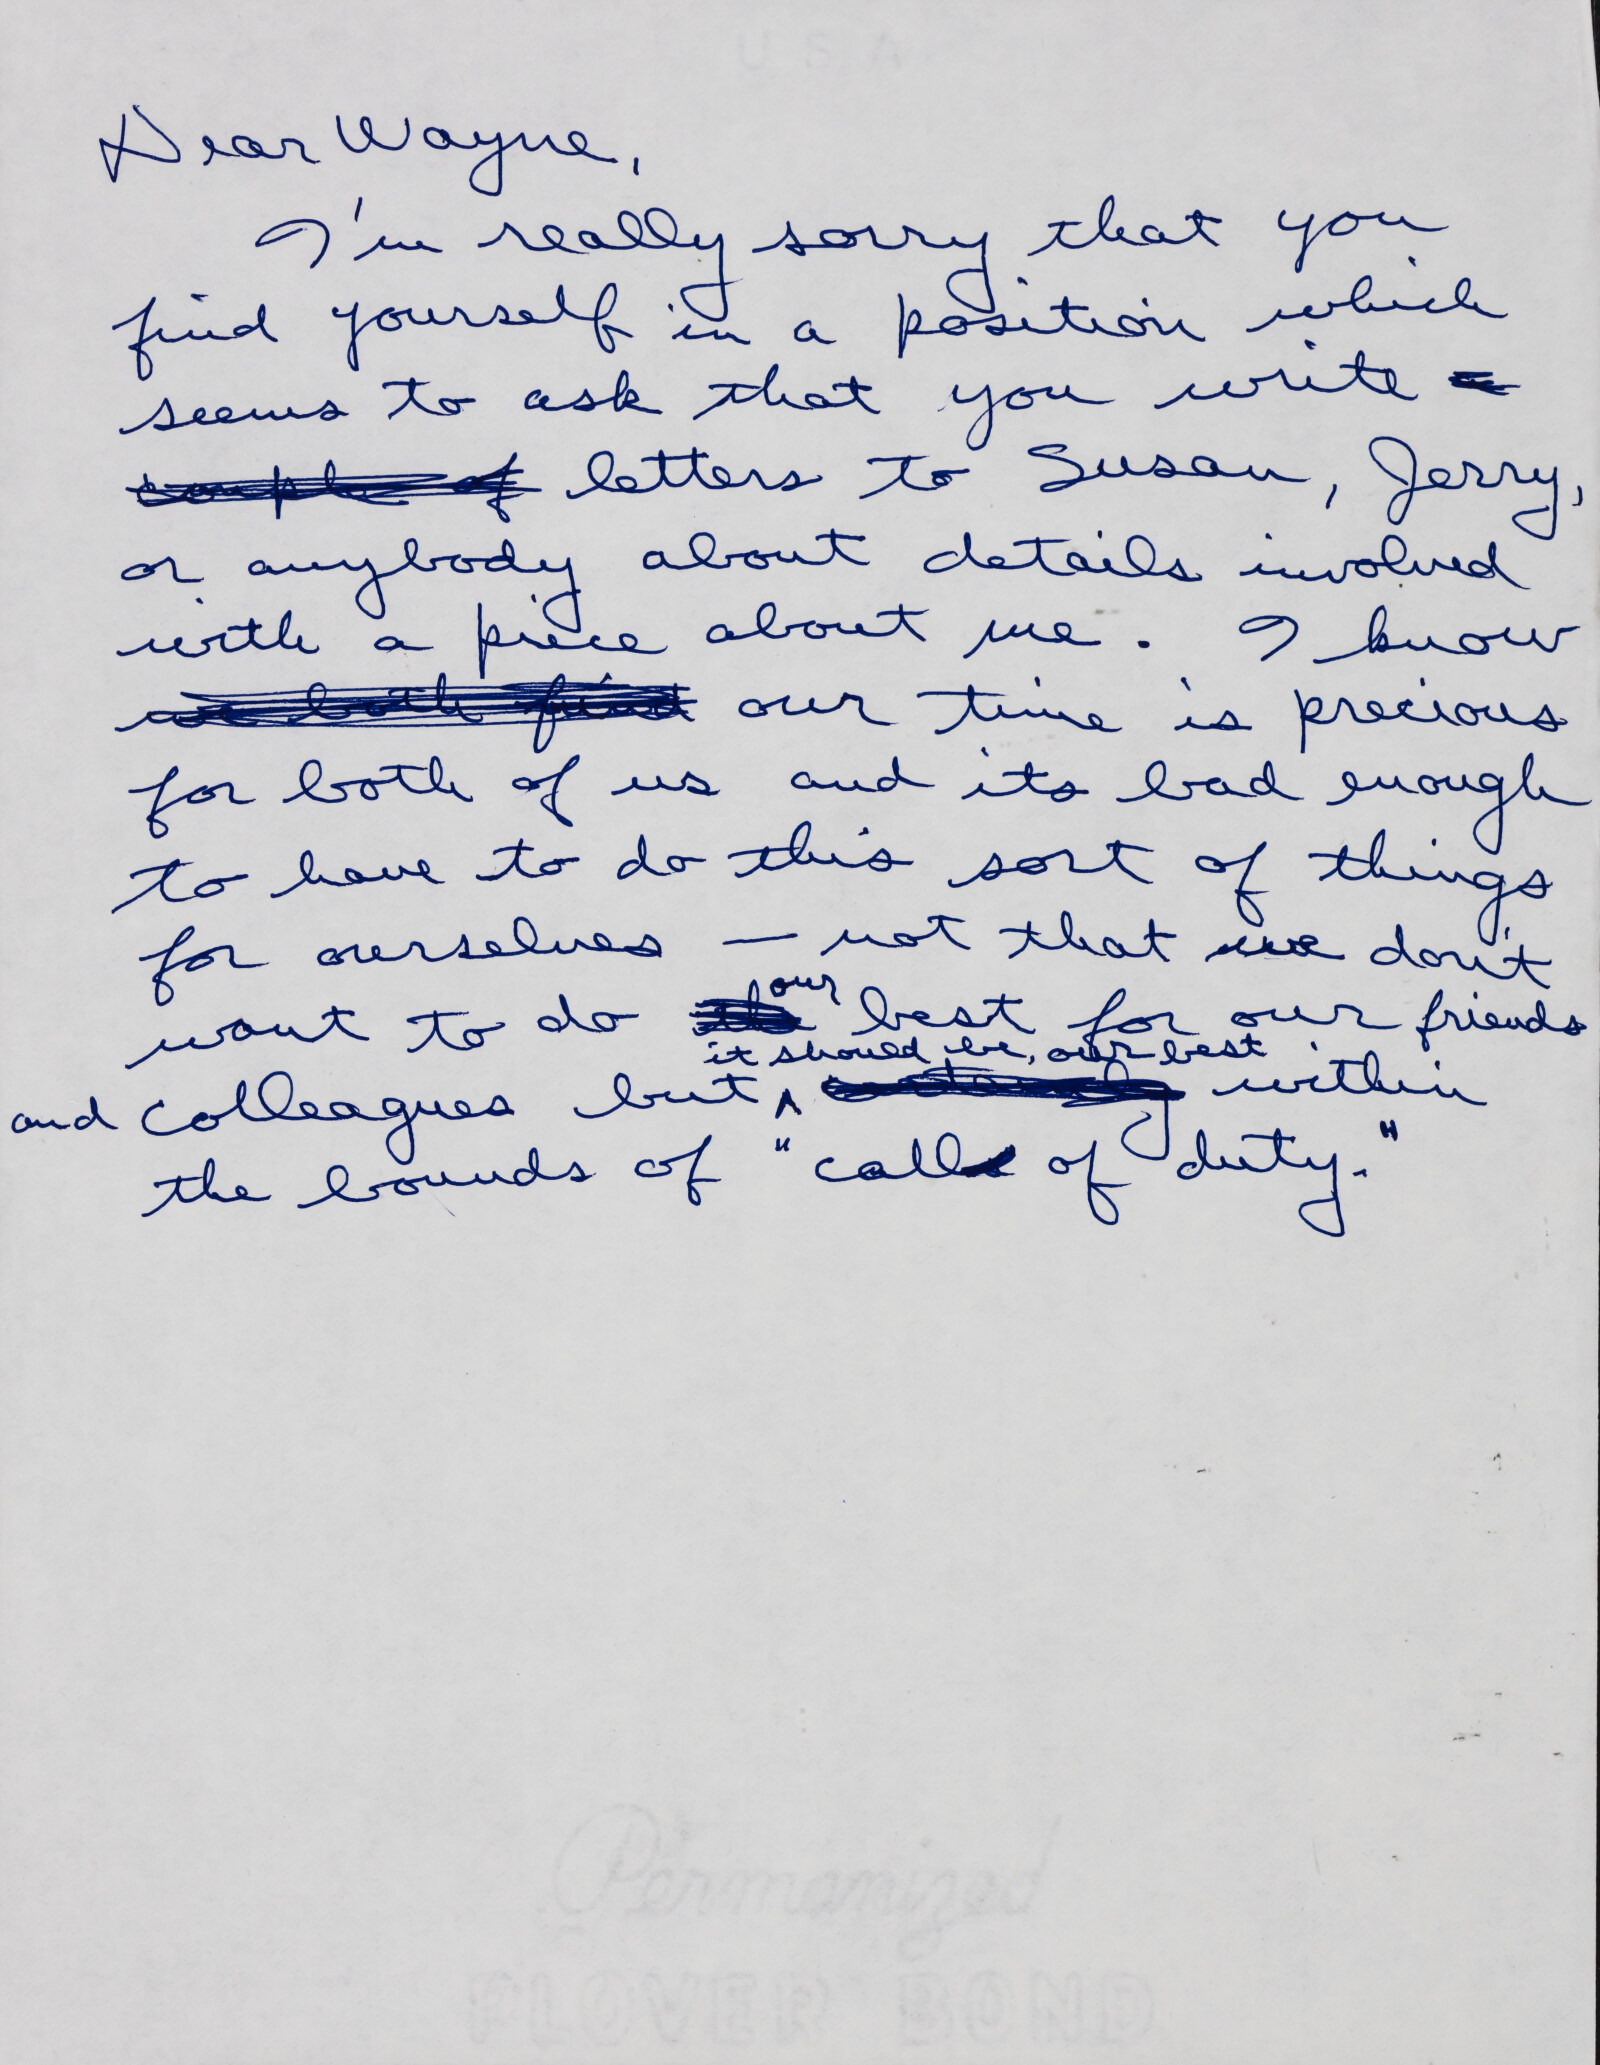 USA
Dear Wayne,
I'm really sorry that you
find yourself in a position which
seems to ask that you write a
couple of letters to Susan, Jerry,
or anybody about details involved
with a piece about me. I know
we both find our time is precious
for both of us and its bad enough
to have to do this sort of things
for ourselves — not that we don't
our
want to do the best for our friends
it should be, our best
and colleagues but ^ within
the bounds of "calls of duty."
Permanized
PLOVER BOND